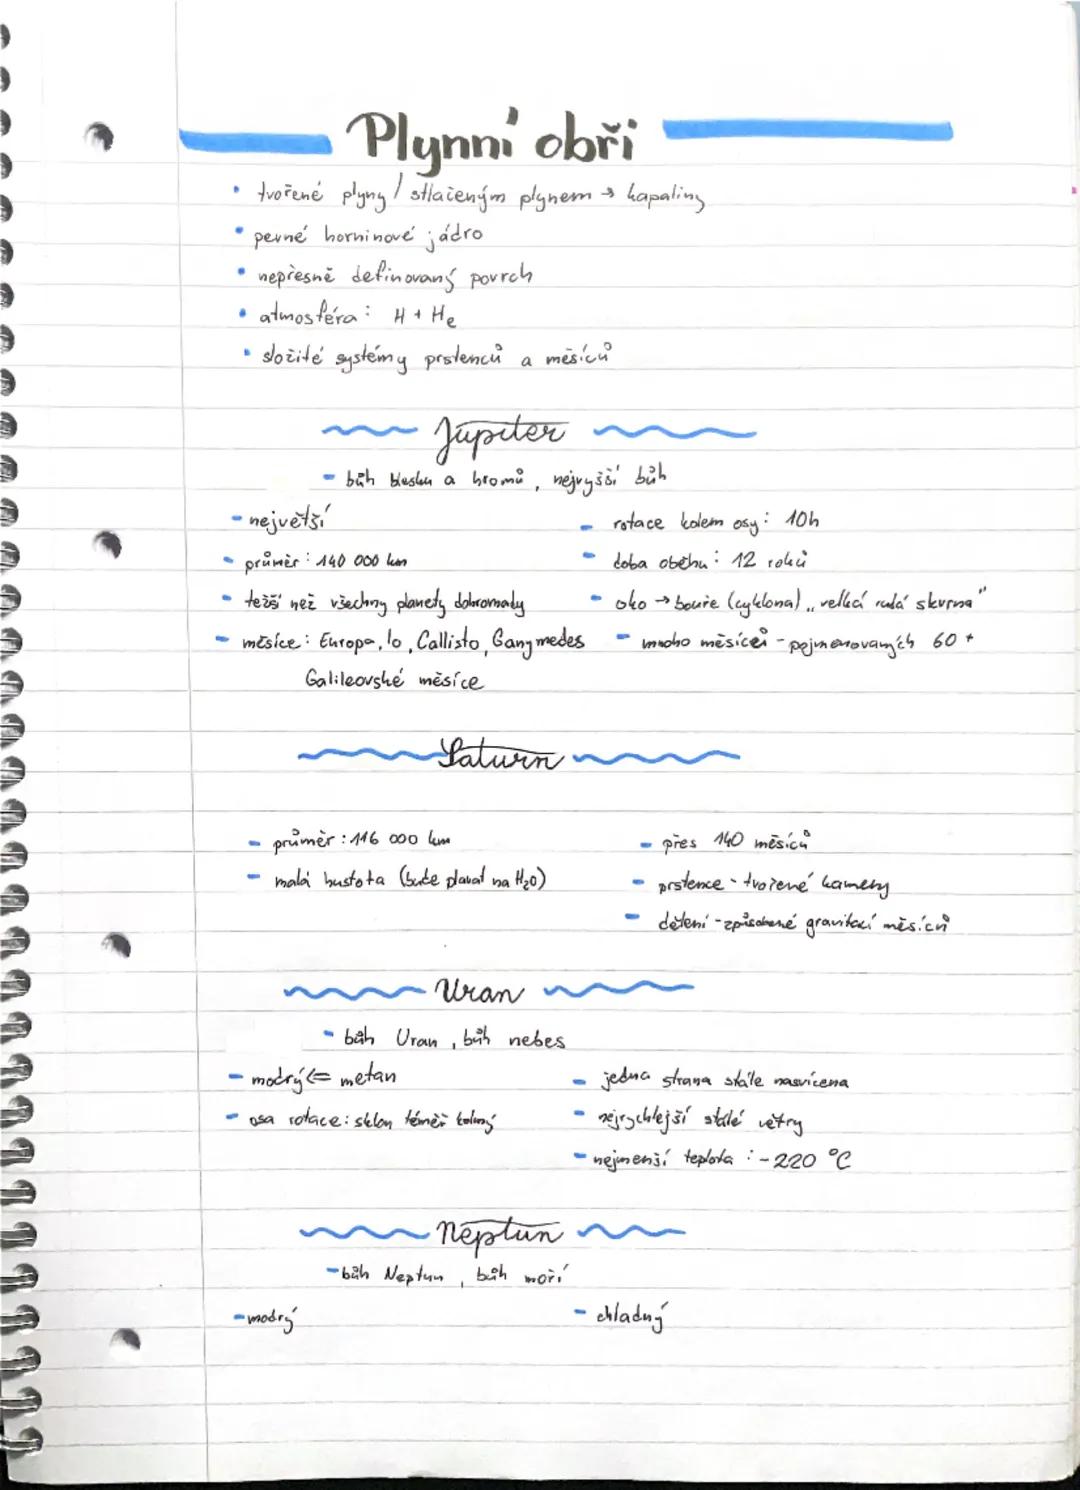 Plynní obři
• tvořené plyny / stlačeným plynem → kapaliny
• pevné horninové jádro
• nepřesně definovaný povrch
• atmosféra: H + He
• složité systémy prstenců a měsíců
Jupiter
- bůh blesku a hromů, nejvyšší bůh
- největší
- průměr: 140 000 km
- težší než všechny planety dohromady
- měsíce: Europa, Io, Callisto, Ganymedes
Galileovské měsíce
- rotace kolem osy: 10h
- doba oběhu: 12 roků
- oko → bouře (cyklona) „velká rudá skvrna"
- mnoho měsíců - pojmenovaných 60+
Saturn
- průměr: 116 000 km
- malá hustota (bude plavat na H₂O)
- přes 140 měsíců
- prstence - tvořené kameny
- dělení - způsobené gravitací měsíců
Uran
- bůh Uran, bůh nebes
- modrý <= metan
- osa rotace: sklon téměř kolmý
- jedna strana stále nasvícena
- nejrychlejší stálé větry
- nejmenší teplota: -220 °C
Neptun
- bůh Neptun, bůh moří
- modrý
- chladný